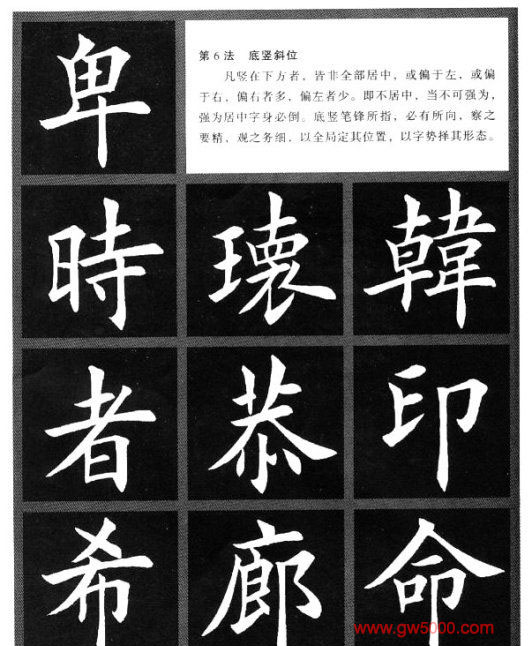 卑
第6法 底竖斜位
凡竖在下方者，皆非全部居中，或偏于左，或偏
于右，偏右者多，偏左者少。即不居中，当不可强为，
强为居中字身必倒。底竖笔锋所指，必有所向，察之
要精，观之务细，以全局定其位置，以字势择其形态。
時 瓌 韓
者 恭 印
希 廊 命
www.gw5000.com